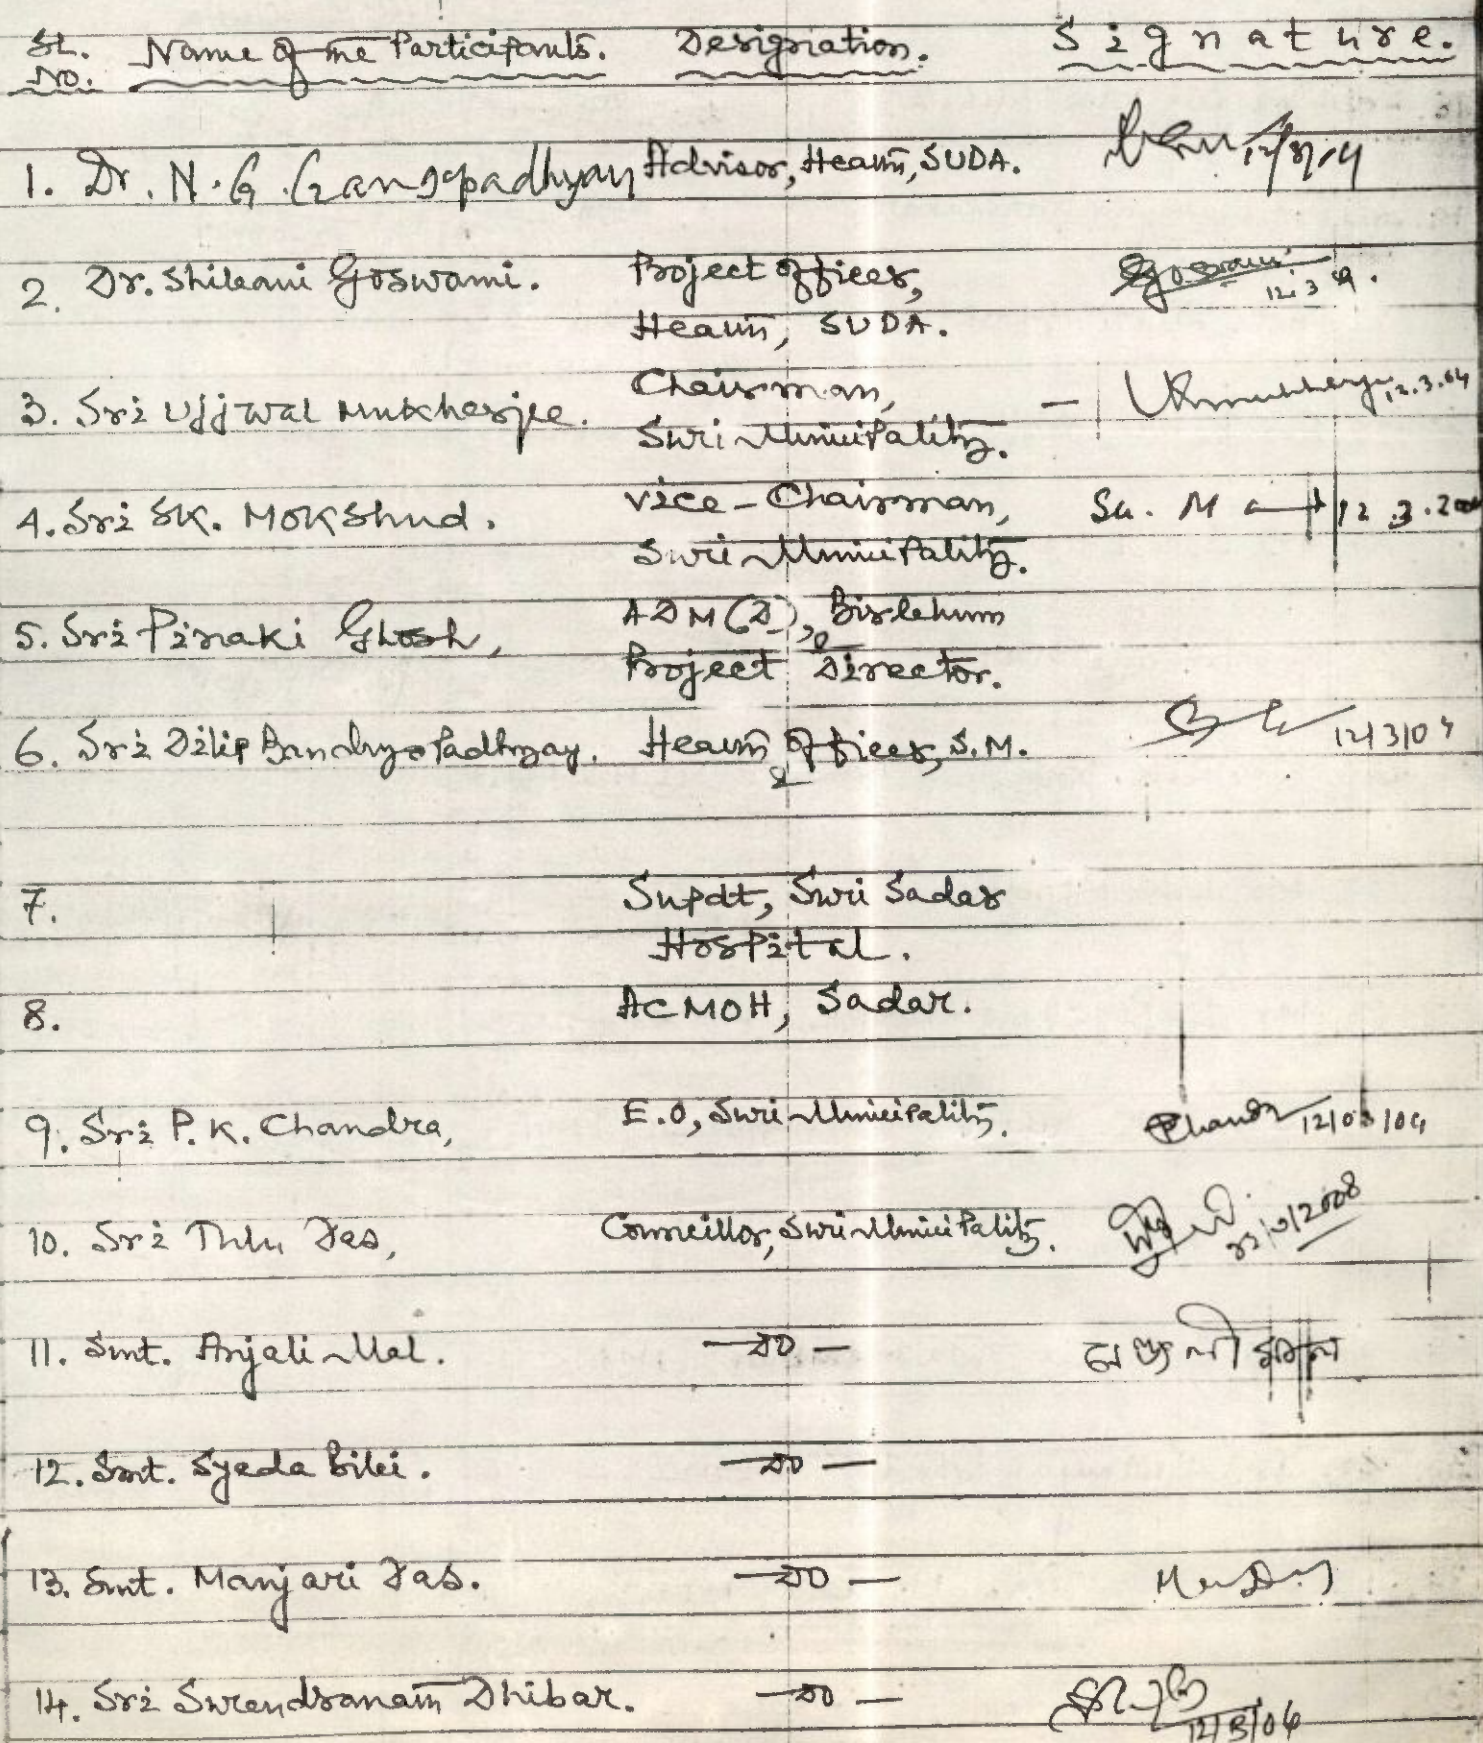 Sl. No. Name of the Participants. Designation. Signature.
1. Dr. N. G. Gangopadhyay Advisor, Health, SUDA. 12/3/04
2. Dr. Shibani Goswami. Project Officer, Goswami 12.3.04.
Health, SUDA.
3. Sri Ujjwal Mukherjee. Chairman, — UKmukherjee 12.3.04
Suri Municipality.
4. Sri SK. Mokshud. Vice-Chairman, 12.3.2004
Suri Municipality.
5. Sri Pinaki Ghosh, ADM (D), Birbhum
Project Director.
6. Sri Dilip Bandyopadhyay. Health Officer, S.M. 12/3/04
7. Supdt, Suri Sadar
Hospital.
8. ACMOH, Sadar.
9. Sri P. K. Chandra, E.O, Suri Municipality. PChandra 12/03/04
10. Sri Tulu Das, Councillor, Suri Municipality.
11. Smt. Anjali Mal. — DO —
12. Smt. Syeda Bibi. — DO —
13. Smt. Manjari Das. — DO —
14. Sri Surendranath Dhibar. — DO — 12/3/04